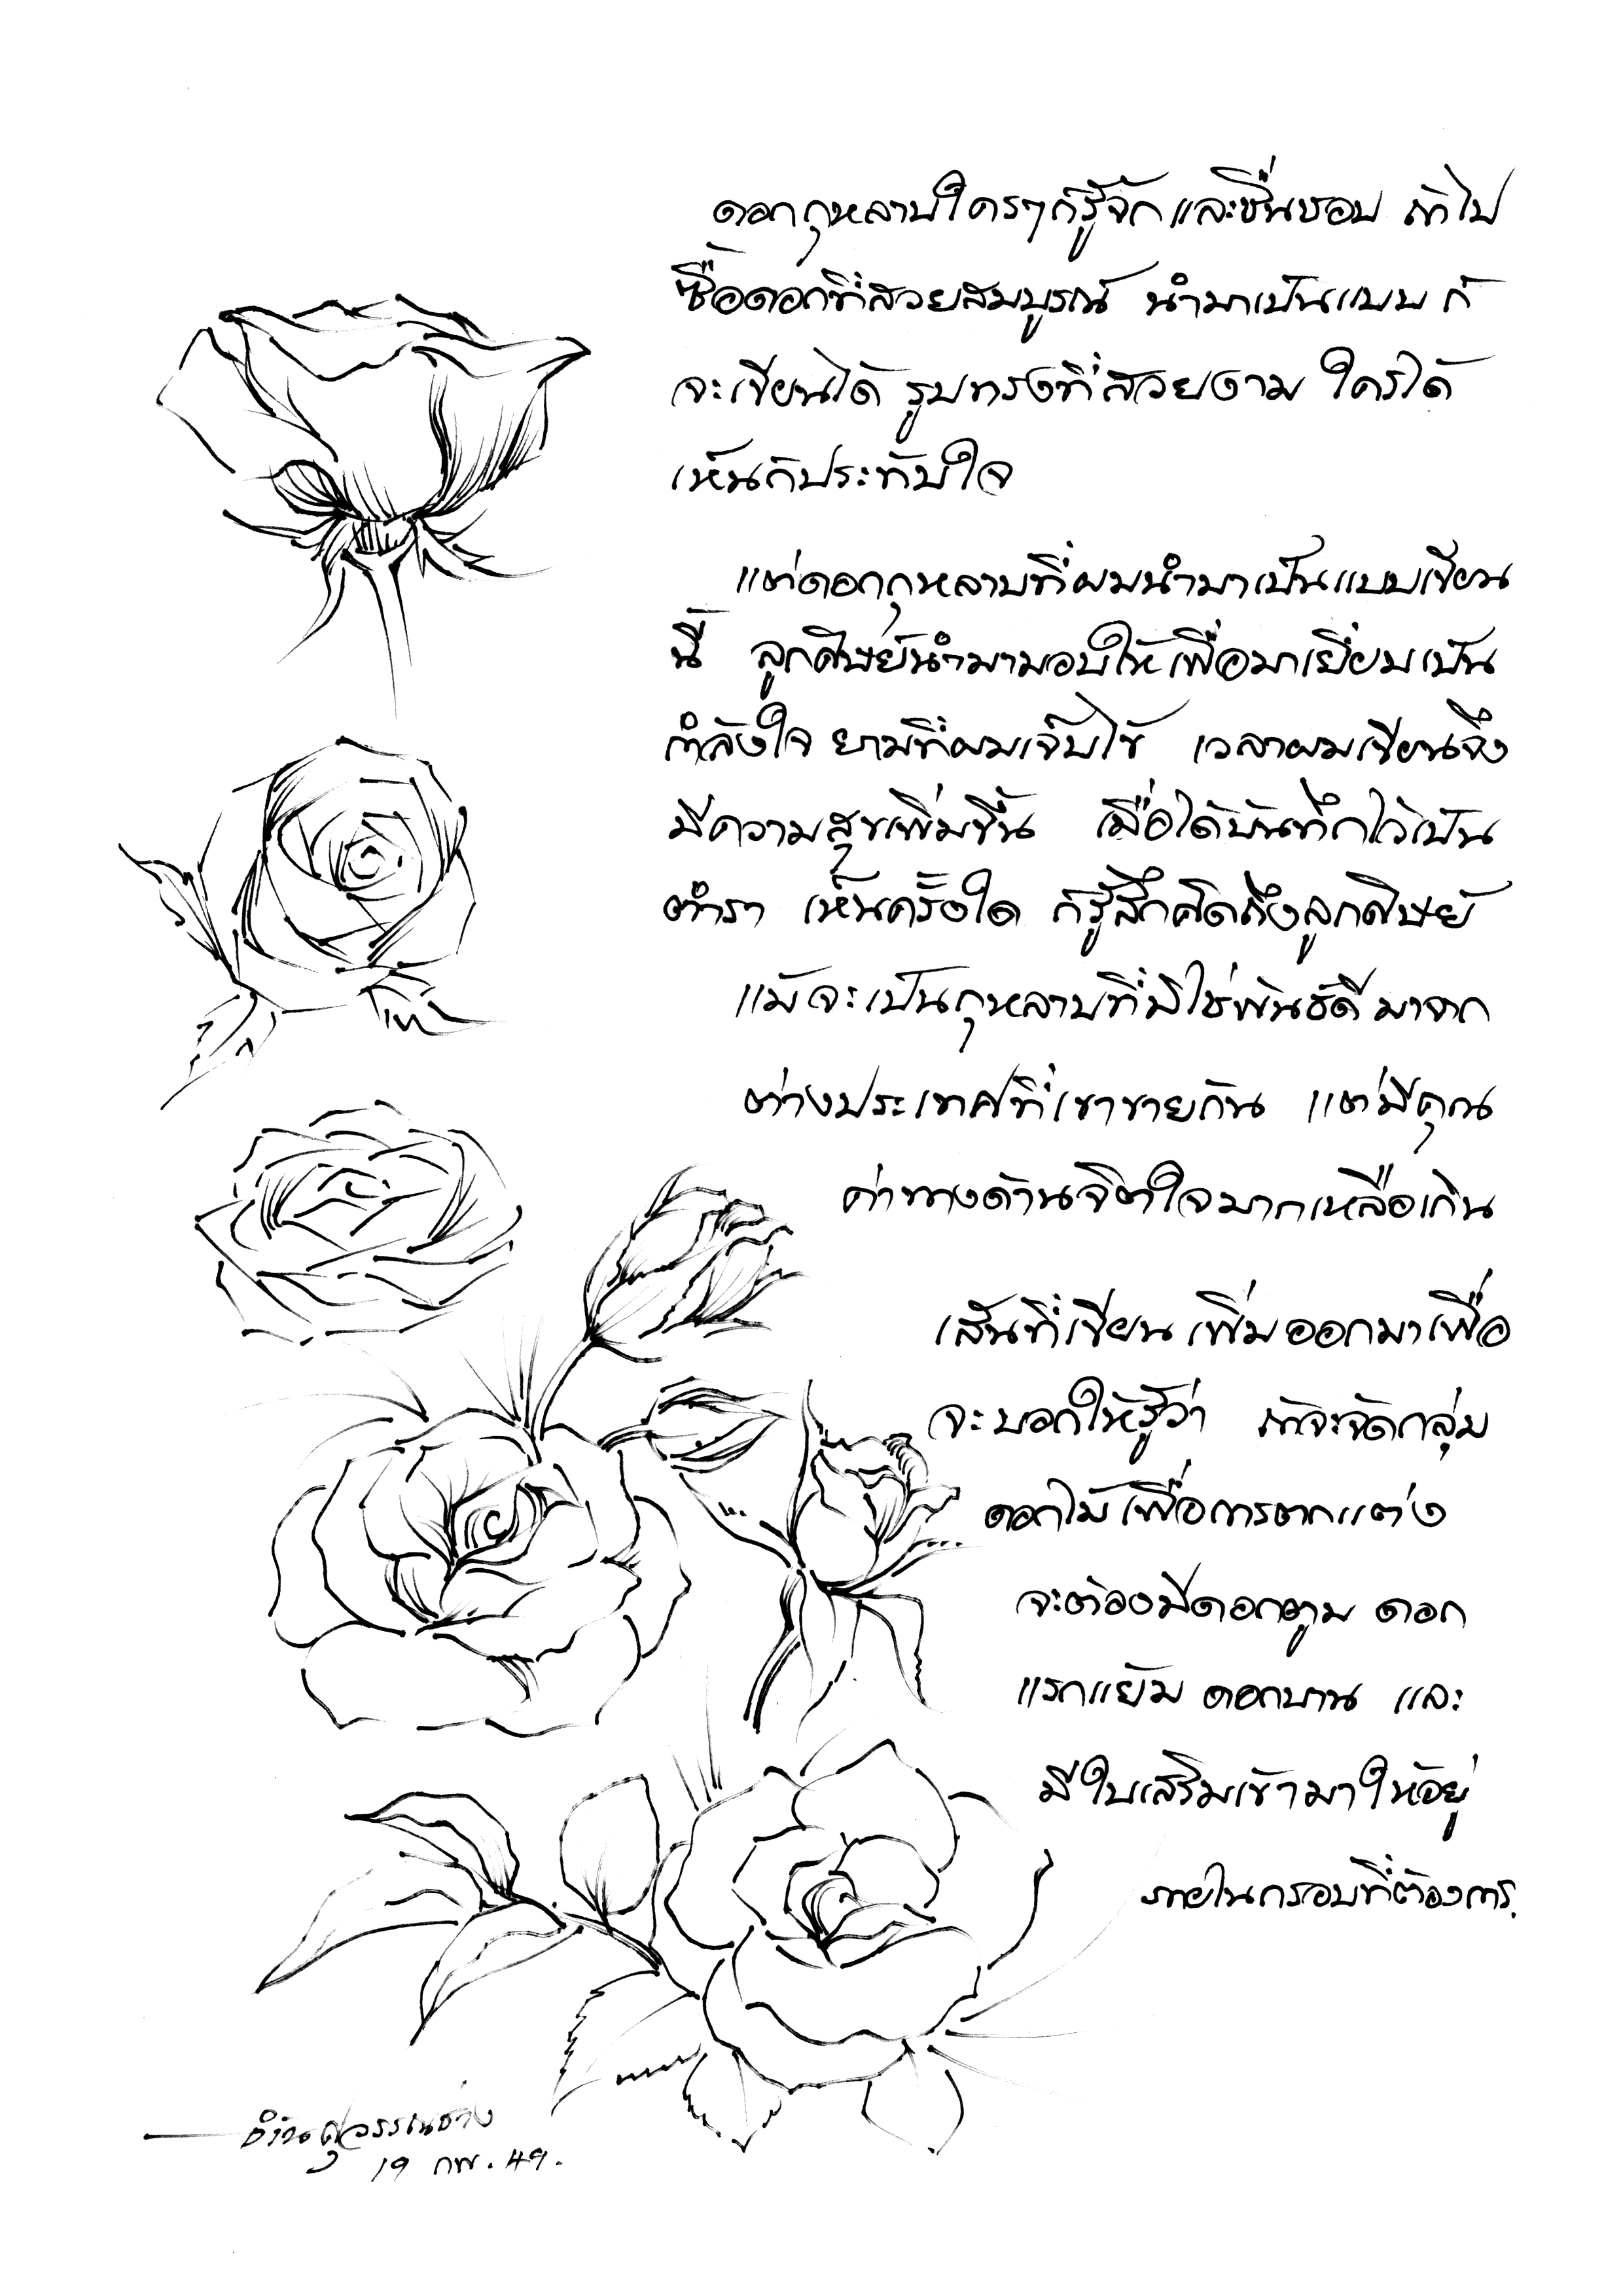 ดอกกุหลาบใครๆก็รู้จัก และชื่นชอบ ถ้าไป
ซื้อดอกที่สวยสมบูรณ์ นำมาเป็นแบบ ก็
จะเขียนได้ รูปทรงที่สวยงาม ใครได้
เห็นก็ประทับใจ
แต่ดอกกุหลาบที่ผมนำมาเป็นแบบเขียน
นี้ ลูกศิษย์นำมามอบให้เพื่อมาเยี่ยมเป็น
กำลังใจ ยามที่ผมเจ็บไข้ เวลาผมเขียนจึง
มีความสุขเพิ่มขึ้น เมื่อได้บันทึกไว้เป็น
ตำรา เห็นครั้งใด ก็รู้สึกคิดถึงลูกศิษย์
แม้จะเป็นกุหลาบที่มิใช่พันธ์ดี มาจาก
ต่างประเทศที่เขาขายกัน แต่มีคุณ
ค่าทางด้านจิตใจมากเหลือเกิน
เส้นที่เขียน เพิ่มออกมาเพื่อ
จะบอกให้รู้ว่า ถ้าจะจัดกลุ่ม
ดอกไม้ เพื่อการตกแต่ง
จะต้องมีดอกตูม ดอก
แรกแย้ม ดอกบาน และ
มีใบเสริมเข้ามาให้อยู่
ภายในกรอบที่ต้องการ.
19 กพ. 49.